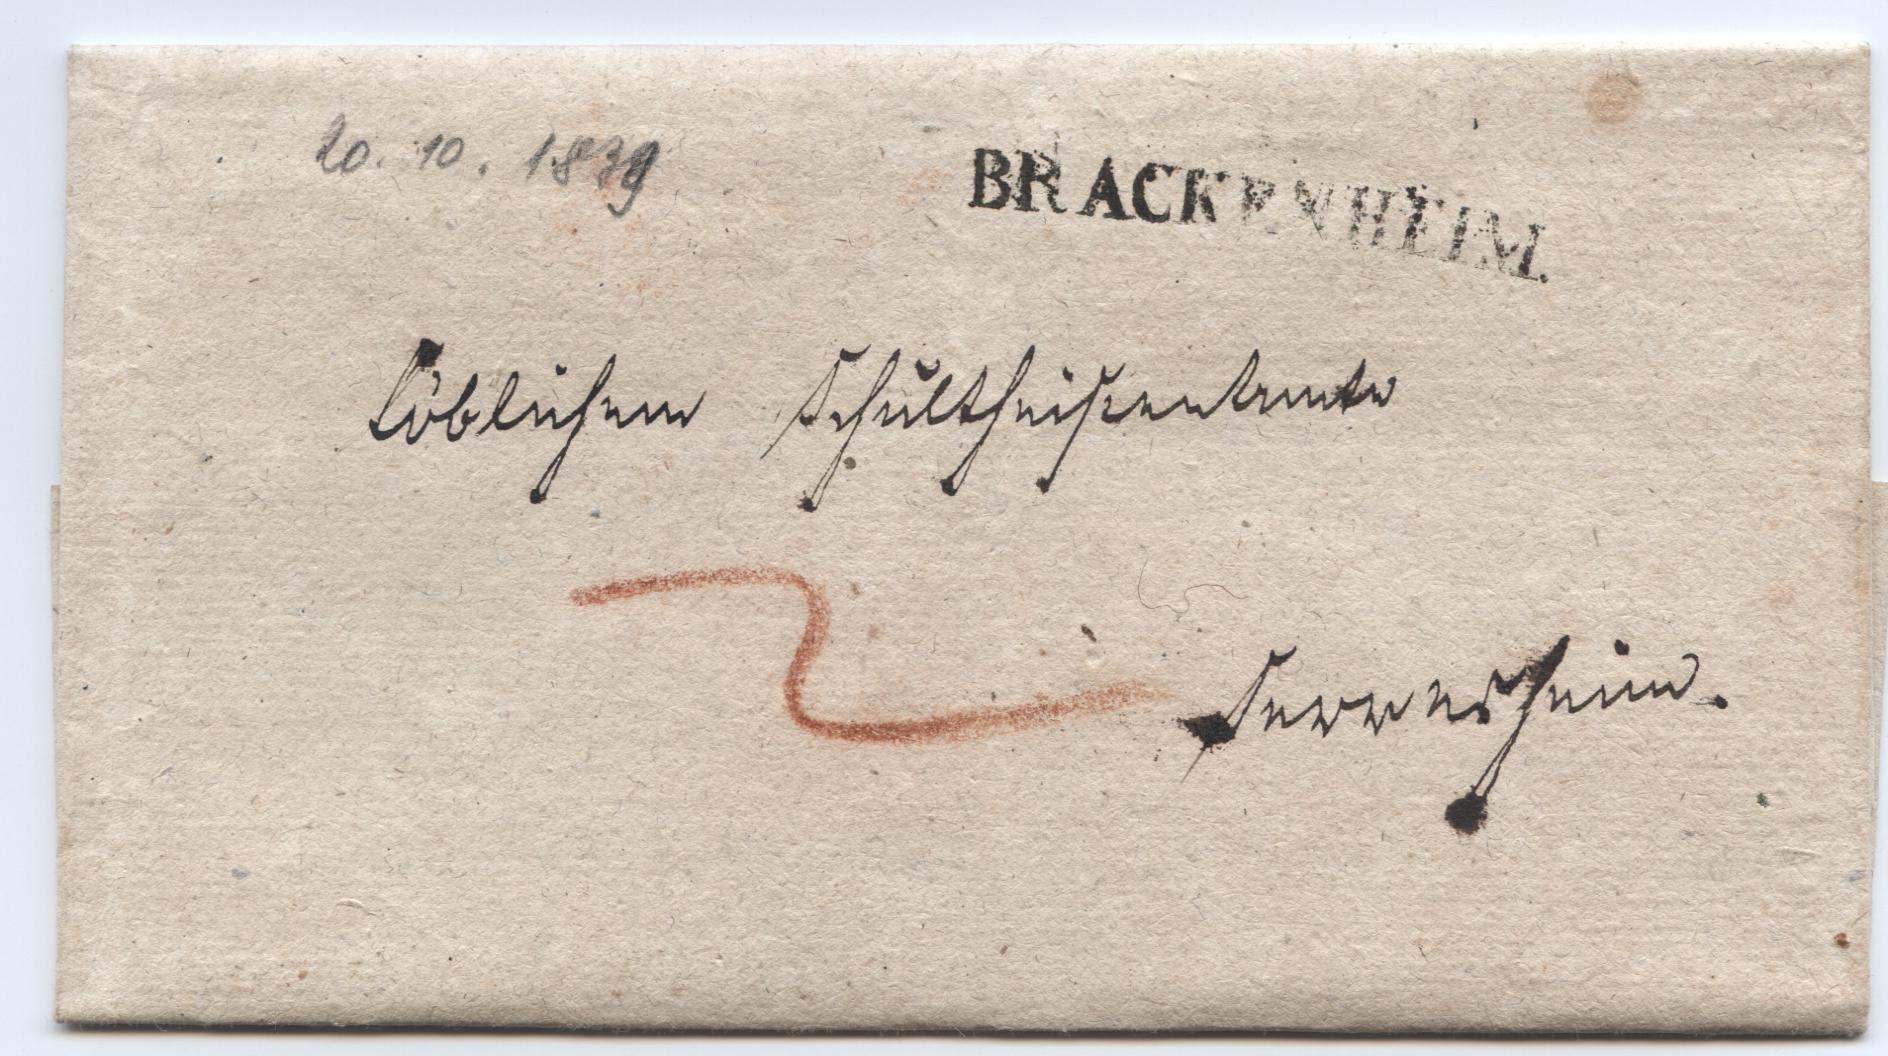 20. 10. 1839
BRACKENHEIM.
Löblichem Schultheißenamte
2
Sersheim.